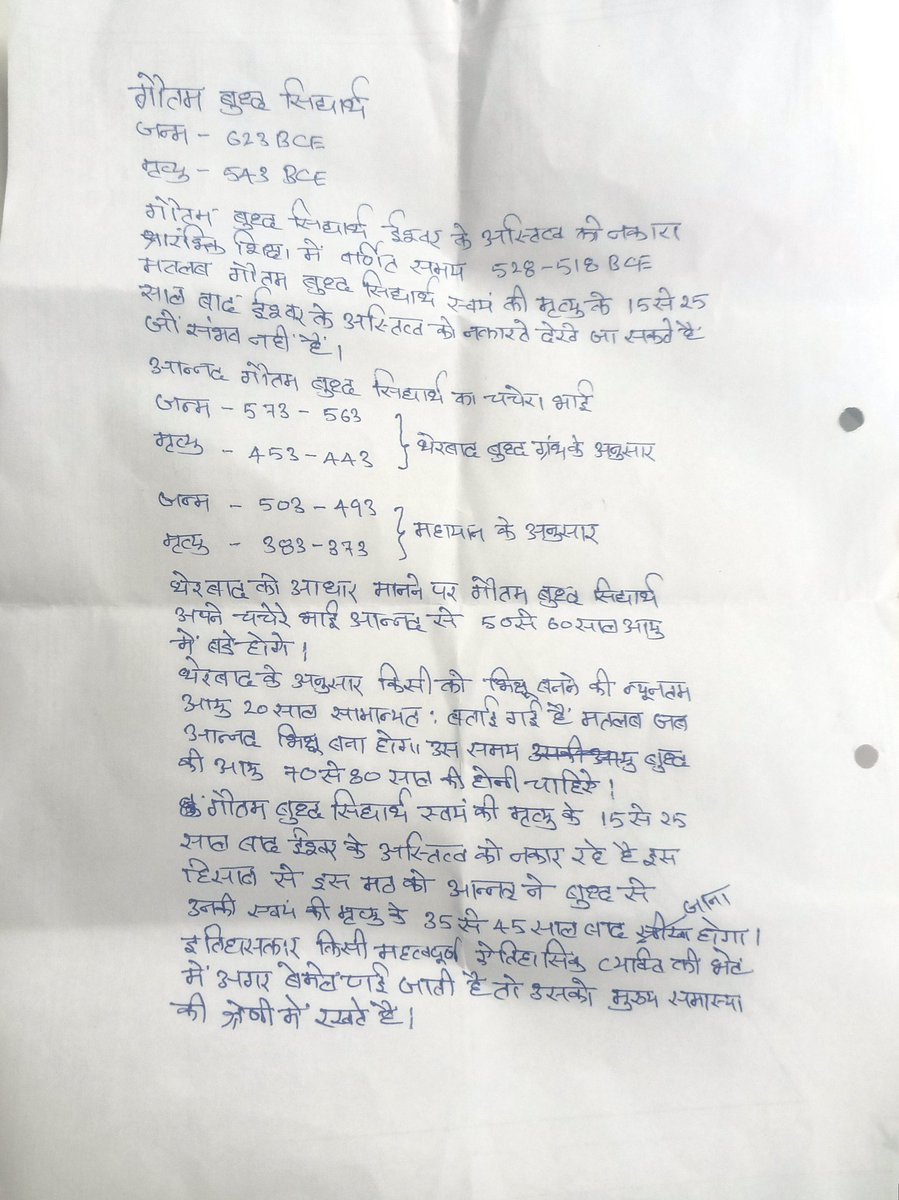 गौतम बुध्द सिध्दार्थ
जन्म - 623 BCE
मृत्यु - 543 BCE
गौतम बुध्द सिध्दार्थ ईश्वर के अस्तित्व को नकारा
प्रारंभिक शिक्षा में वर्णित समय 528-518 BCE
मतलब गौतम बुध्द सिध्दार्थ स्वयं की मृत्यु के 15 से 25
साल बाद ईश्वर के अस्तित्व को नकारते देखे जा सकते हैं
जों संभव नहीं हैं।
आन्नद गौतम बुध्द सिध्दार्थ का चचेरा भाई
जन्म - 573 - 563
मृत्यु - 453-443 } थेरबाद बुध्द ग्रंथ के अनुसार
जन्म - 503-493
मृत्यु - 383-373 } महायान के अनुसार
थेरबाद को आधार मानने पर गौतम बुध्द सिध्दार्थ
अपने चचेरे भाई आन्नद से 50 से 60 साल आयु
में बडे होगे।
थेरबाद के अनुसार किसी को भिक्षु बनने की न्यूनतम
आयु 20 साल सामान्यत: बताई गई हैं मतलब जब
आन्नद भिक्षु बना होगा उस समय उसकी आयु बुध्द
की आयु 70 से 80 साल की होनी चाहिऐ।
गौतम बुध्द सिध्दार्थ स्वयं की मृत्यु के 15 से 25
साल बाद ईश्वर के अस्तित्व को नकार रहे है इस
हिसाब से इस मत को आन्नद ने बुध्द से
उनकी स्वयं की मृत्यु के 35 से 45 साल बाद जाना होगा।
इतिहासकार किसी महत्वपूर्ण ऐतिहासिक व्यक्ति की भेट
में अगर बेमेल पाई जाती है तो उसको मुख्य समास्या
की श्रेणी में रखते है।